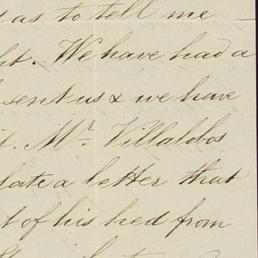 as to tell me
ht. We have had a
sent us & we have
t. Mr. Villalobos
late a letter that
t of his bed from